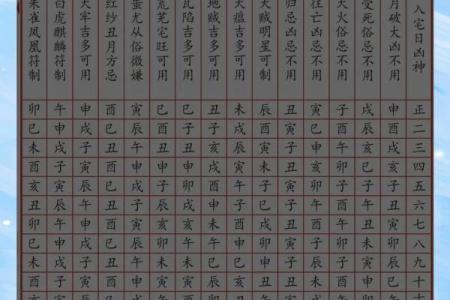 入宅日凶神 正 二 三 四 五 六 七 八 九 十
月破大凶不用 申 酉 戌 亥 子 丑 寅 卯 辰 巳
受死俗忌不用 戌 辰 亥 巳 子 午 丑 未 寅 申
天火俗忌不用 子 卯 午 酉 子 卯 午 酉 子 卯
往亡凶忌不用 寅 巳 申 亥 卯 午 酉 子 辰 未
归忌凶忌不用 丑 寅 子 丑 寅 子 丑 寅 子 丑
天贼明星可制 辰 酉 寅 未 子 巳 戌 卯 申 丑
天瘟吉多可用 未 戌 辰 寅 午 子 酉 申 巳 亥
地贼吉多可用 丑 子 亥 戌 酉 申 未 午 巳 辰
瓦陷吉多可用 巳 子 丑 申 卯 戌 亥 午 未 寅
荒芜宅旺可用 巳 酉 丑 申 子 辰 亥 卯 未 寅
蚩尤从俗微嫌 寅 辰 午 申 戌 子 寅 辰 午 申
红纱丑月方忌 酉 巳 丑 酉 巳 丑 酉 巳 丑 酉
天牢吉多可用 申 戌 子 寅 辰 午 申 戌 子 寅
白虎麒麟符制 午 申 戌 子 寅 辰 午 申 戌 子
朱雀凤凰符制 卯 巳 未 酉 亥 丑 卯 巳 未 酉